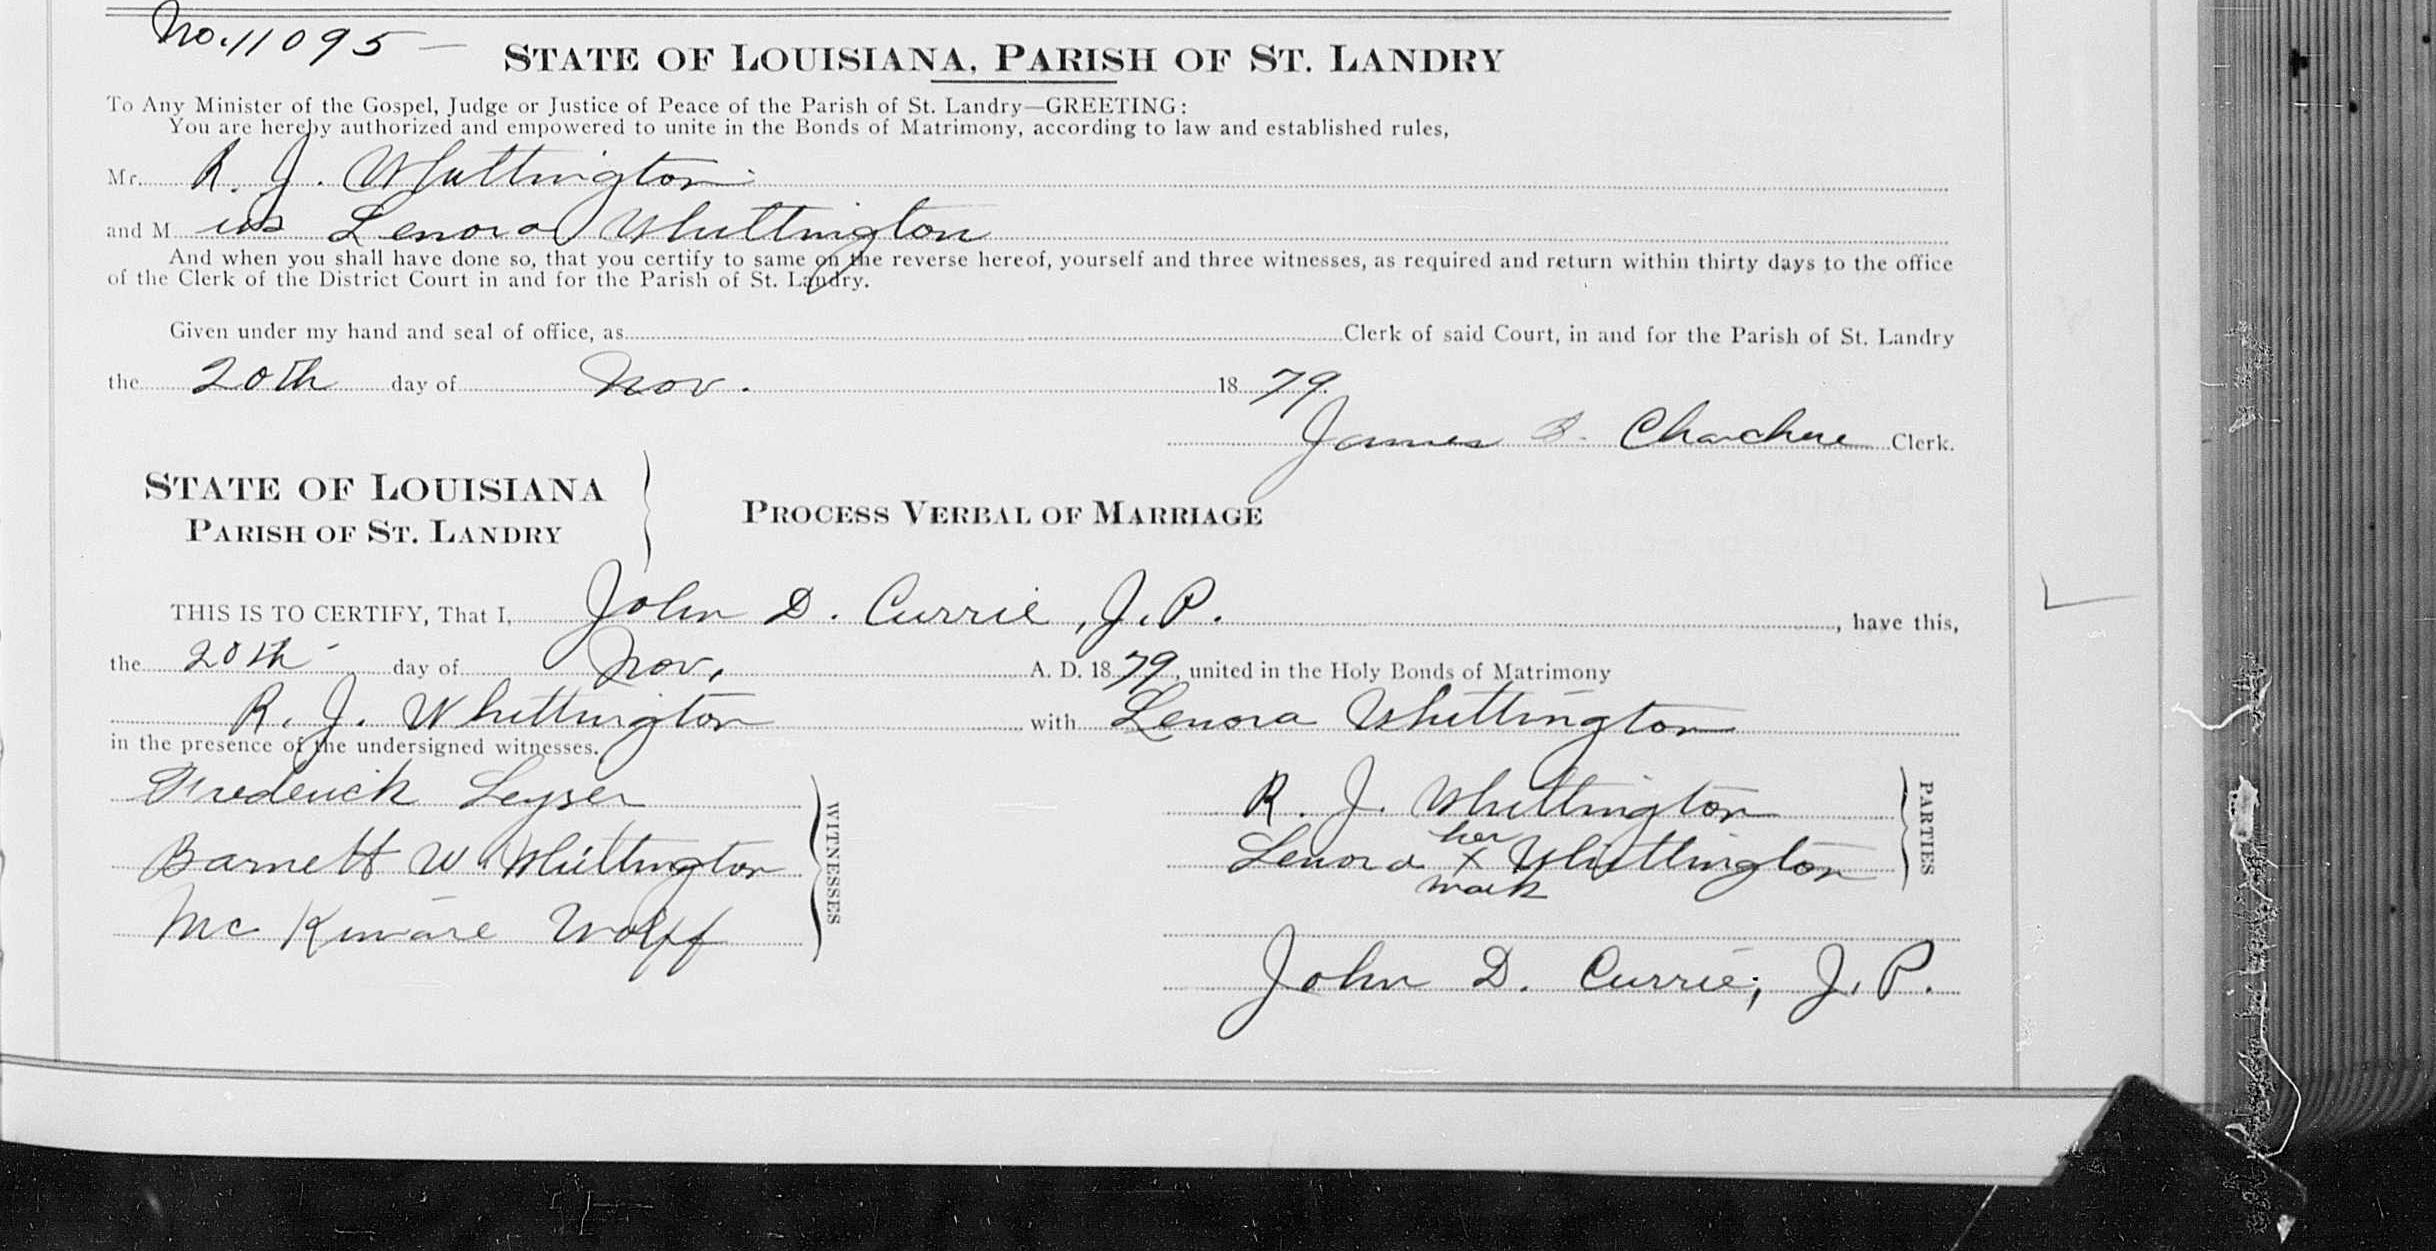 No. 11095 —
STATE OF LOUISIANA, PARISH OF ST. LANDRY
To Any Minister of the Gospel, Judge or Justice of Peace of the Parish of St. Landry—GREETING:
You are hereby authorized and empowered to unite in the Bonds of Matrimony, according to law and established rules,
Mr. R. J. Whittington
and M iss Lenora Whittington
And when you shall have done so, that you certify to same on the reverse hereof, yourself and three witnesses, as required and return within thirty days to the office
of the Clerk of the District Court in and for the Parish of St. Landry.
Given under my hand and seal of office, as Clerk of said Court, in and for the Parish of St. Landry
the 20th day of Nov. 18 79
James Chachere Clerk.
STATE OF LOUISIANA
PARISH OF ST. LANDRY
PROCESS VERBAL OF MARRIAGE
THIS IS TO CERTIFY, That I, John D. Currie, J.P. , have this,
the 20th day of Nov, A. D. 18 79, united in the Holy Bonds of Matrimony
R. J. Whittington with Lenora Whittington
in the presence of the undersigned witnesses.
Frederick Leyser
Barnett W. Whittington
Mc Wolff
WITNESSES
R. J. Whittington
her
Lenora X Whittington
mark
PARTIES
John D. Currie, J.P.